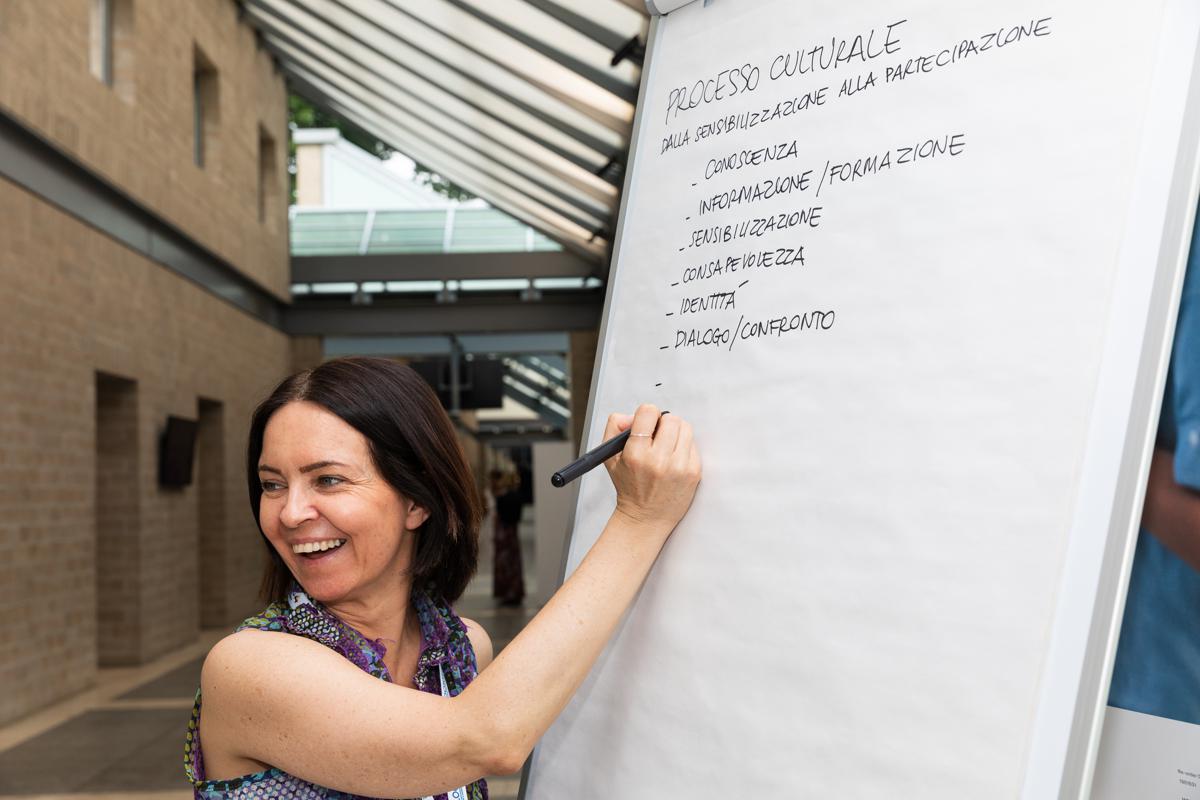 PROCESSO CULTURALE
DALLA SENSIBILIZZAZIONE ALLA PARTECIPAZIONE
- CONOSCENZA
- INFORMAZIONE/FORMAZIONE
- SENSIBILIZZAZIONE
- CONSAPEVOLEZZA
- IDENTITÀ
- DIALOGO/CONFRONTO
-